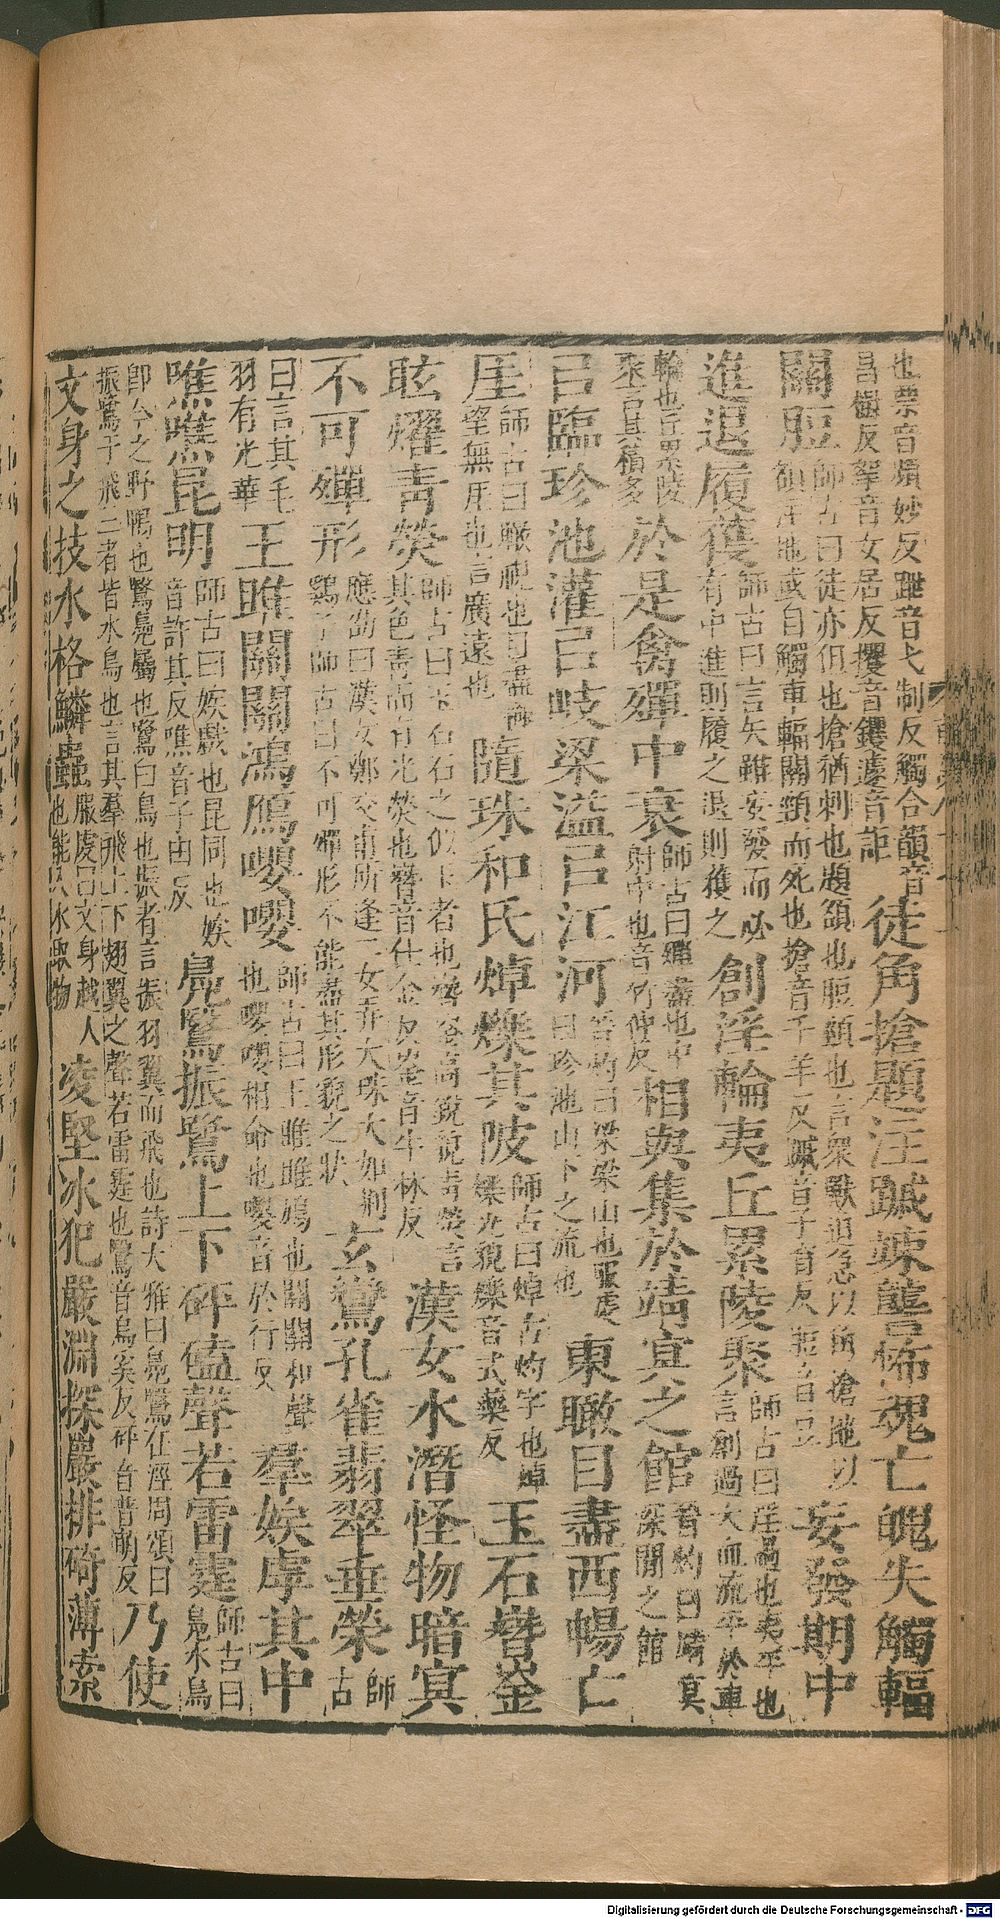 也票音頻妙反跇音弋制反觸合韻音昌樹反挐音女居反攫音钁遽音詎徒角搶題注蹴竦讋怖魂亡魄失觸輻
關脰師古曰徒亦但也搶猶刺也題頟也脰頸也言衆獸迫急以角搶地以頟注地或自觸車輻關頸而死也搶音千羊反蹴音子育反脰音豆妄發期中
進退履獲師古曰言矢雖妄發而必有中進則履之退則獲之創淫輪夷丘累陵聚師古曰淫過也夷平也言創過大血流平於車
輪也丘累陵聚言其積多於是禽殫中衰師古曰殫盡也中射中也音竹仲反相與集於靖冥之館晉灼曰靖冥深閒之館
㠯臨珍池灌㠯岐梁溢㠯江河晉灼曰梁梁山也服虔曰珍池山下之流也東瞰目盡西暢亡
厓師古曰瞰視也目盡極望無厓也言廣遠也隨珠和氏焯爍其陂師古曰焯古灼字也焯爍光貌爍音式藥反玉石嶜崟
眩燿青熒師古曰玉石石之似玉者也嶜崟高銳貌青熒言其色青而有光熒也嶜音仕金反崟音牛林反漢女水潛怪物暗冥
不可殫形應劭曰漢女鄭交甫所逢二女弄大珠大如荆鷄子師古曰不可殫形不能盡其形貌之狀玄鸞孔雀翡翠垂榮師古
曰言其毛羽有光華王雎關關鴻鴈嚶嚶師古曰王雎雎鳩也關關和聲也嚶嚶相命也嚶音於行反羣娭虖其中
噍噍昆明師古曰娭戲也昆同也娭音許其反噍音子由反鳧鷖振鷺上下砰磕聲若雷霆師古曰鳧水鳥
卽今之野鴨也鷖鳧屬也鷺白鳥也振者言振羽翼而飛也詩大雅曰鳧鷖在涇周頌曰振鷺于飛二者皆水鳥也言其羣飛上下翅翼之聲若雷霆也鷖音烏奚反砰音普萌反乃使
文身之技水格鱗蟲服虔曰文身越人也能入水取物凌堅冰犯嚴淵探巖排碕薄索
Digitalisierung gefördert durch die Deutsche Forschungsgemeinschaft - DFG